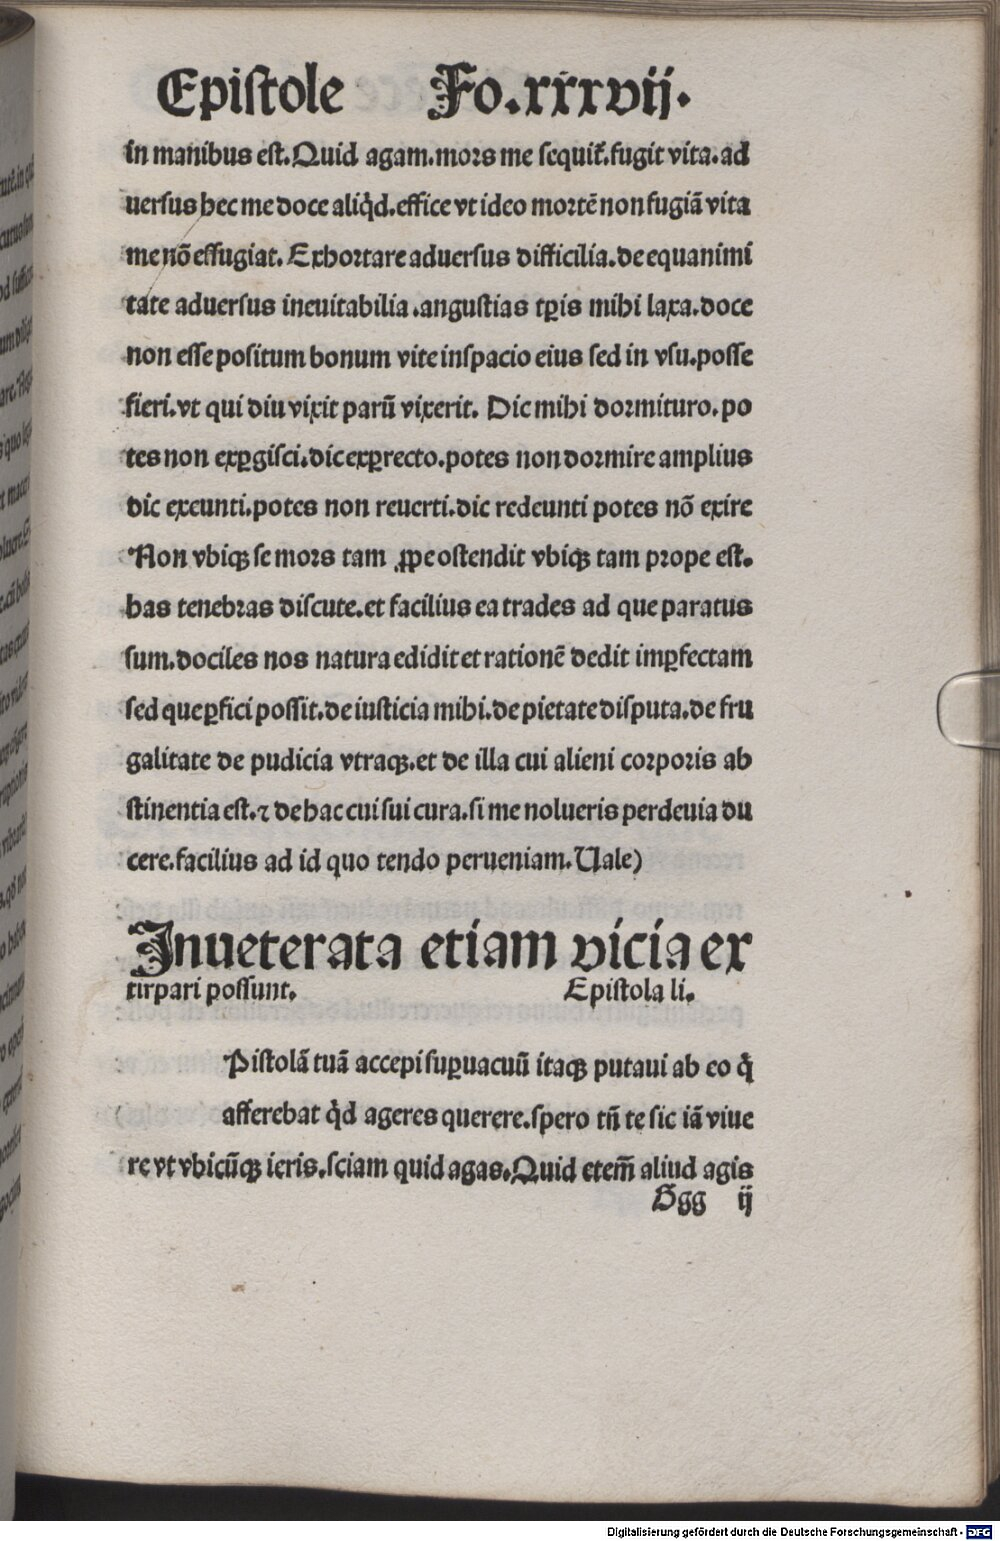 Epistole Fo.xxxvij.
in manibus est.Quid agam.mors me sequit᷑.fugit vita.ad
uersus hec me doce aliq̇d.effice vt ideo mortē non fugiā vita
me nō effugiat. Exhortare aduersus difficilia.de equanimi
tate aduersus ineuitabilia.angustias tꝑis mihi laxa.doce
non esse positum bonum vite in spacio eius sed in vsu.posse
fieri.vt qui diu vixit parū vixerit. Dic mihi dormituro.po
tes non exꝑgisci.dic exꝑrecto.potes non dormire amplius
dic exeunti.potes non reuerti.dic redeunti potes nō exire
Non vbiqꝫ se mors tam ꝓpe ostendit vbiqꝫ tam prope est.
has tenebras discute.et facilius ea trades ad que paratus
sum.dociles nos natura edidit et rationē dedit imꝑfectam
sed que ꝑfici possit.de iusticia mihi.de pietate disputa.de fru
galitate de pudicia vtraqꝫ.et de illa cui alieni corporis ab
stinentia est.⁊ de hac cui sui cura.si me nolueris per deuia du
cere.facilius ad id quo tendo perueniam.Uale)
Inueterata etiam vicia ex
tirpari possunt. Epistola li.
Pistolā tuā accepi suꝑuacuū itaqꝫ putaui ab eo q̇
afferebat q̇d ageres querere.spero tn̄ te sic iā viue
re vt vbicūqꝫ ieris.sciam quid agas.Quid etem̄ aliud agis
Ggg ij
Digitalisierung gefördert durch die Deutsche Forschungsgemeinschaft - DFG